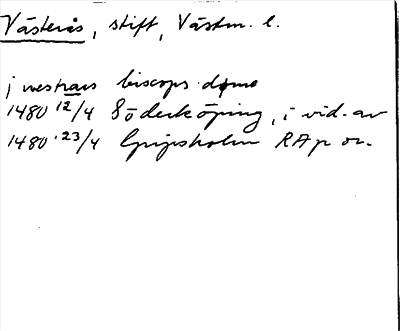 Västerås, stift, Västm. l.
j westrars biscops døme
1480 12/4 Söderköping, i vid. av
1480 23/4 Gripsholm RAp or.